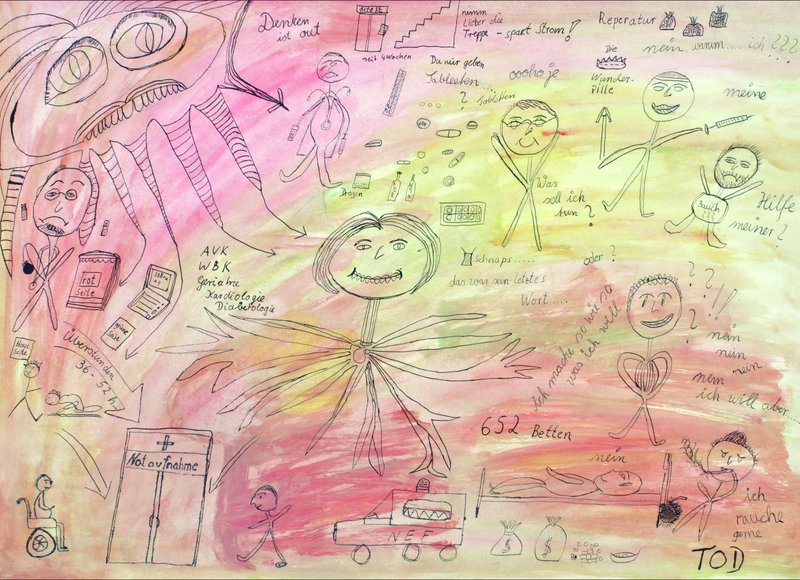 Denken
ist out
nimm
Lieber die
Treppe - spart Strom!
seit 4 Wochen
Reperatur
nein, warum.....ich ???
Du nur geben
Tableeten...
?
ooohoje
Die
Wunder-
pille
meine
Drogen
Was
soll ich
tun ?
auch
???
Hilfe
meiner?
AVK
WBK
Geriatrie
Kardiologie
Diabetologie
Schnaps......
oder ?
das war sein letztes
Wort....
rot
Seite
grüne
Seite
blaue
Seite
Überstunden
36-52 h
ich mache so wie so
was ich will
? ?
?
!!!
nein
nein
nein
nein
ich will aber...
652 Betten
nein
Notaufnahme
NEF
$
$
ich
rauche
gerne
TOD